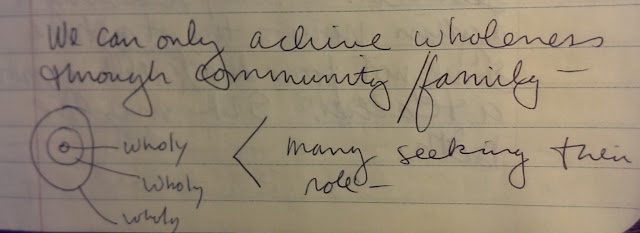 We can only achive wholeness
through community/family –
wholy < many seeking their
wholy role –
wholy